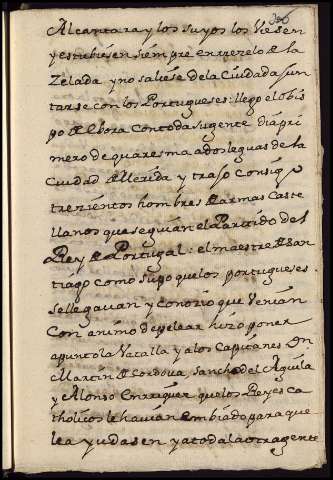 300
Alcantara y los suyos los Viesen
y estubiesen siempre en rrezelo de la
Zelada y no saliese dela Ciudad a Jun
tarse con los Portugueses: llego el obis
po de Ebora con toda su gente dia pri
mero de quaresma a dos leguas de la
Ciudad de Merida y trajo consigo
trezientos hombres de armas Caste
llanos que seguian el Partido del
Rey de Portugal: el maestre de San
tiago como supo que los portugueses
se llegauan y conozio que Venian
Con animo de pelear hizo poner
apunto la Vatalla y a los Capitanes Dn
Martin de Cordova, Sancho del Aguila
y Alonso Enrriquez que los Reyes Ca
tholicos le havian embiado para que
le ayudasen y a toda la otra gente